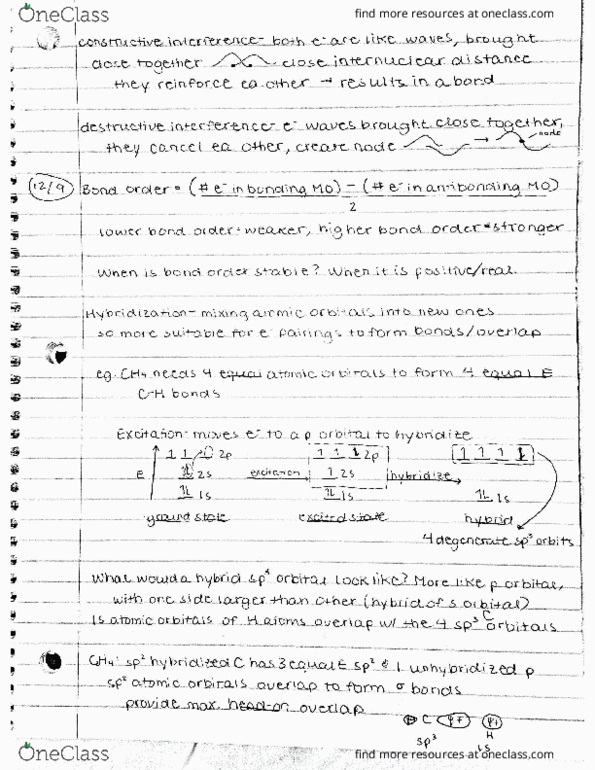 OneClass
find more resources at oneclass.com
constructive interference- both e⁻ are like waves, brought
close together close internuclear distance
they reinforce ea other → results in a bond
destructive interference- e⁻ waves brought close together,
they cancel ea other, create node → node
12/9
Bond order = (# e⁻ in bonding MO) - (# e⁻ in antibonding MO)
2
lower bond order = weaker, higher bond order = stronger
When is bond order stable? When it is positive/real.
Hybridization- mixing atomic orbitals into new ones
so more suitable for e⁻ pairings to form bonds/overlap
eg. CH₄ needs 4 equal atomic orbitals to form 4 equal E
C-H bonds
Excitation- mixes e⁻ to a p orbital to hybridize
1 1 2p 1 1 1 2p 1 1 1 1
E 2s excitation → 1 2s hybridize →
1s 1s 1s
ground state excited state hybrid
4 degenerate sp³ orbits
What would a hybrid sp⁴ orbital look like? More like p orbital,
with one side larger than other (hybrid of s orbital)
1s atomic orbitals of H atoms overlap w/ the 4 sp³ C orbitals
CH₄: sp² hybridized C has 3 equal E sp² & 1 unhybridized p
sp² atomic orbitals overlap to form σ bonds
provide max. head-on overlap
C H
sp³ 1s
OneClass
find more resources at oneclass.com